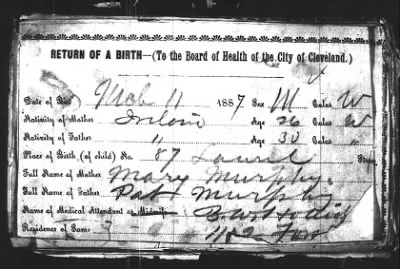 RETURN OF A BIRTH—(To the Board of Health of the City of Cleveland.)
Date of Birth Mch 11 1887 Sex M Color W
Nativity of Mother Ireland Age 26 Color W
Nativity of Father " Age 30 Color "
Place of Birth, (of child) No. 87 Laurel Street
Full Name of Mother Mary Murphy.
Full Name of Father Pat Murphy
Name of Medical Attendant or Midwife
Residence of Same 1182